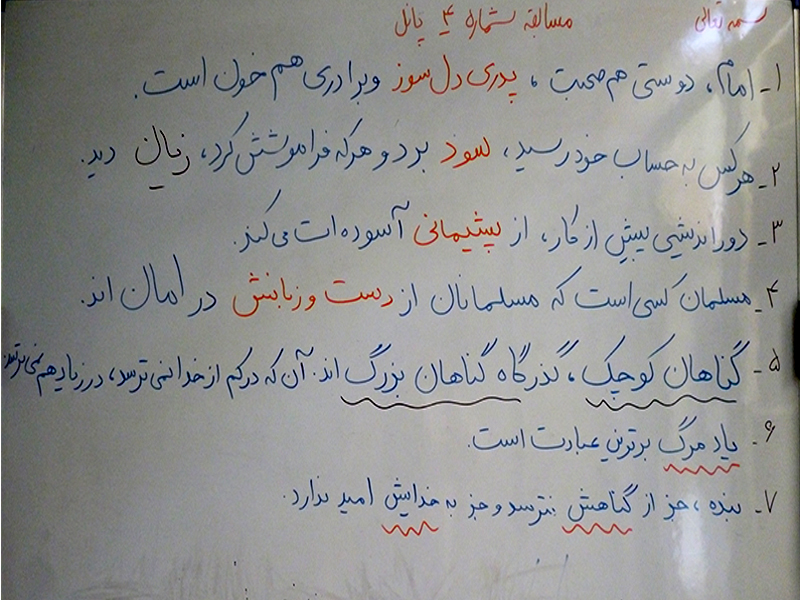 بسمه تعالی
مسابقه شماره ۴ پانل
۱- امام، دوستی هم صحبت، پدری دل سوز و برادری هم خون است.
۲- هرکس به حساب خود رسید، سود برد و هرکه فراموشش کرد، زیان دید.
۳- دوراندیشی پیش از کار، از پشیمانی آسوده ات می کند.
۴- مسلمان کسی است که مسلمانان از دست و زبانش در امان اند.
۵- گناهان کوچک، گذرگاه گناهان بزرگ اند. آن که در کم از خدا نمی ترسد، در زیاد هم نمی ترسد.
۶- یاد مرگ برترین عبادت است.
۷- بنده، جز از گناهش نترسد و جز به خدایش امید ندارد.